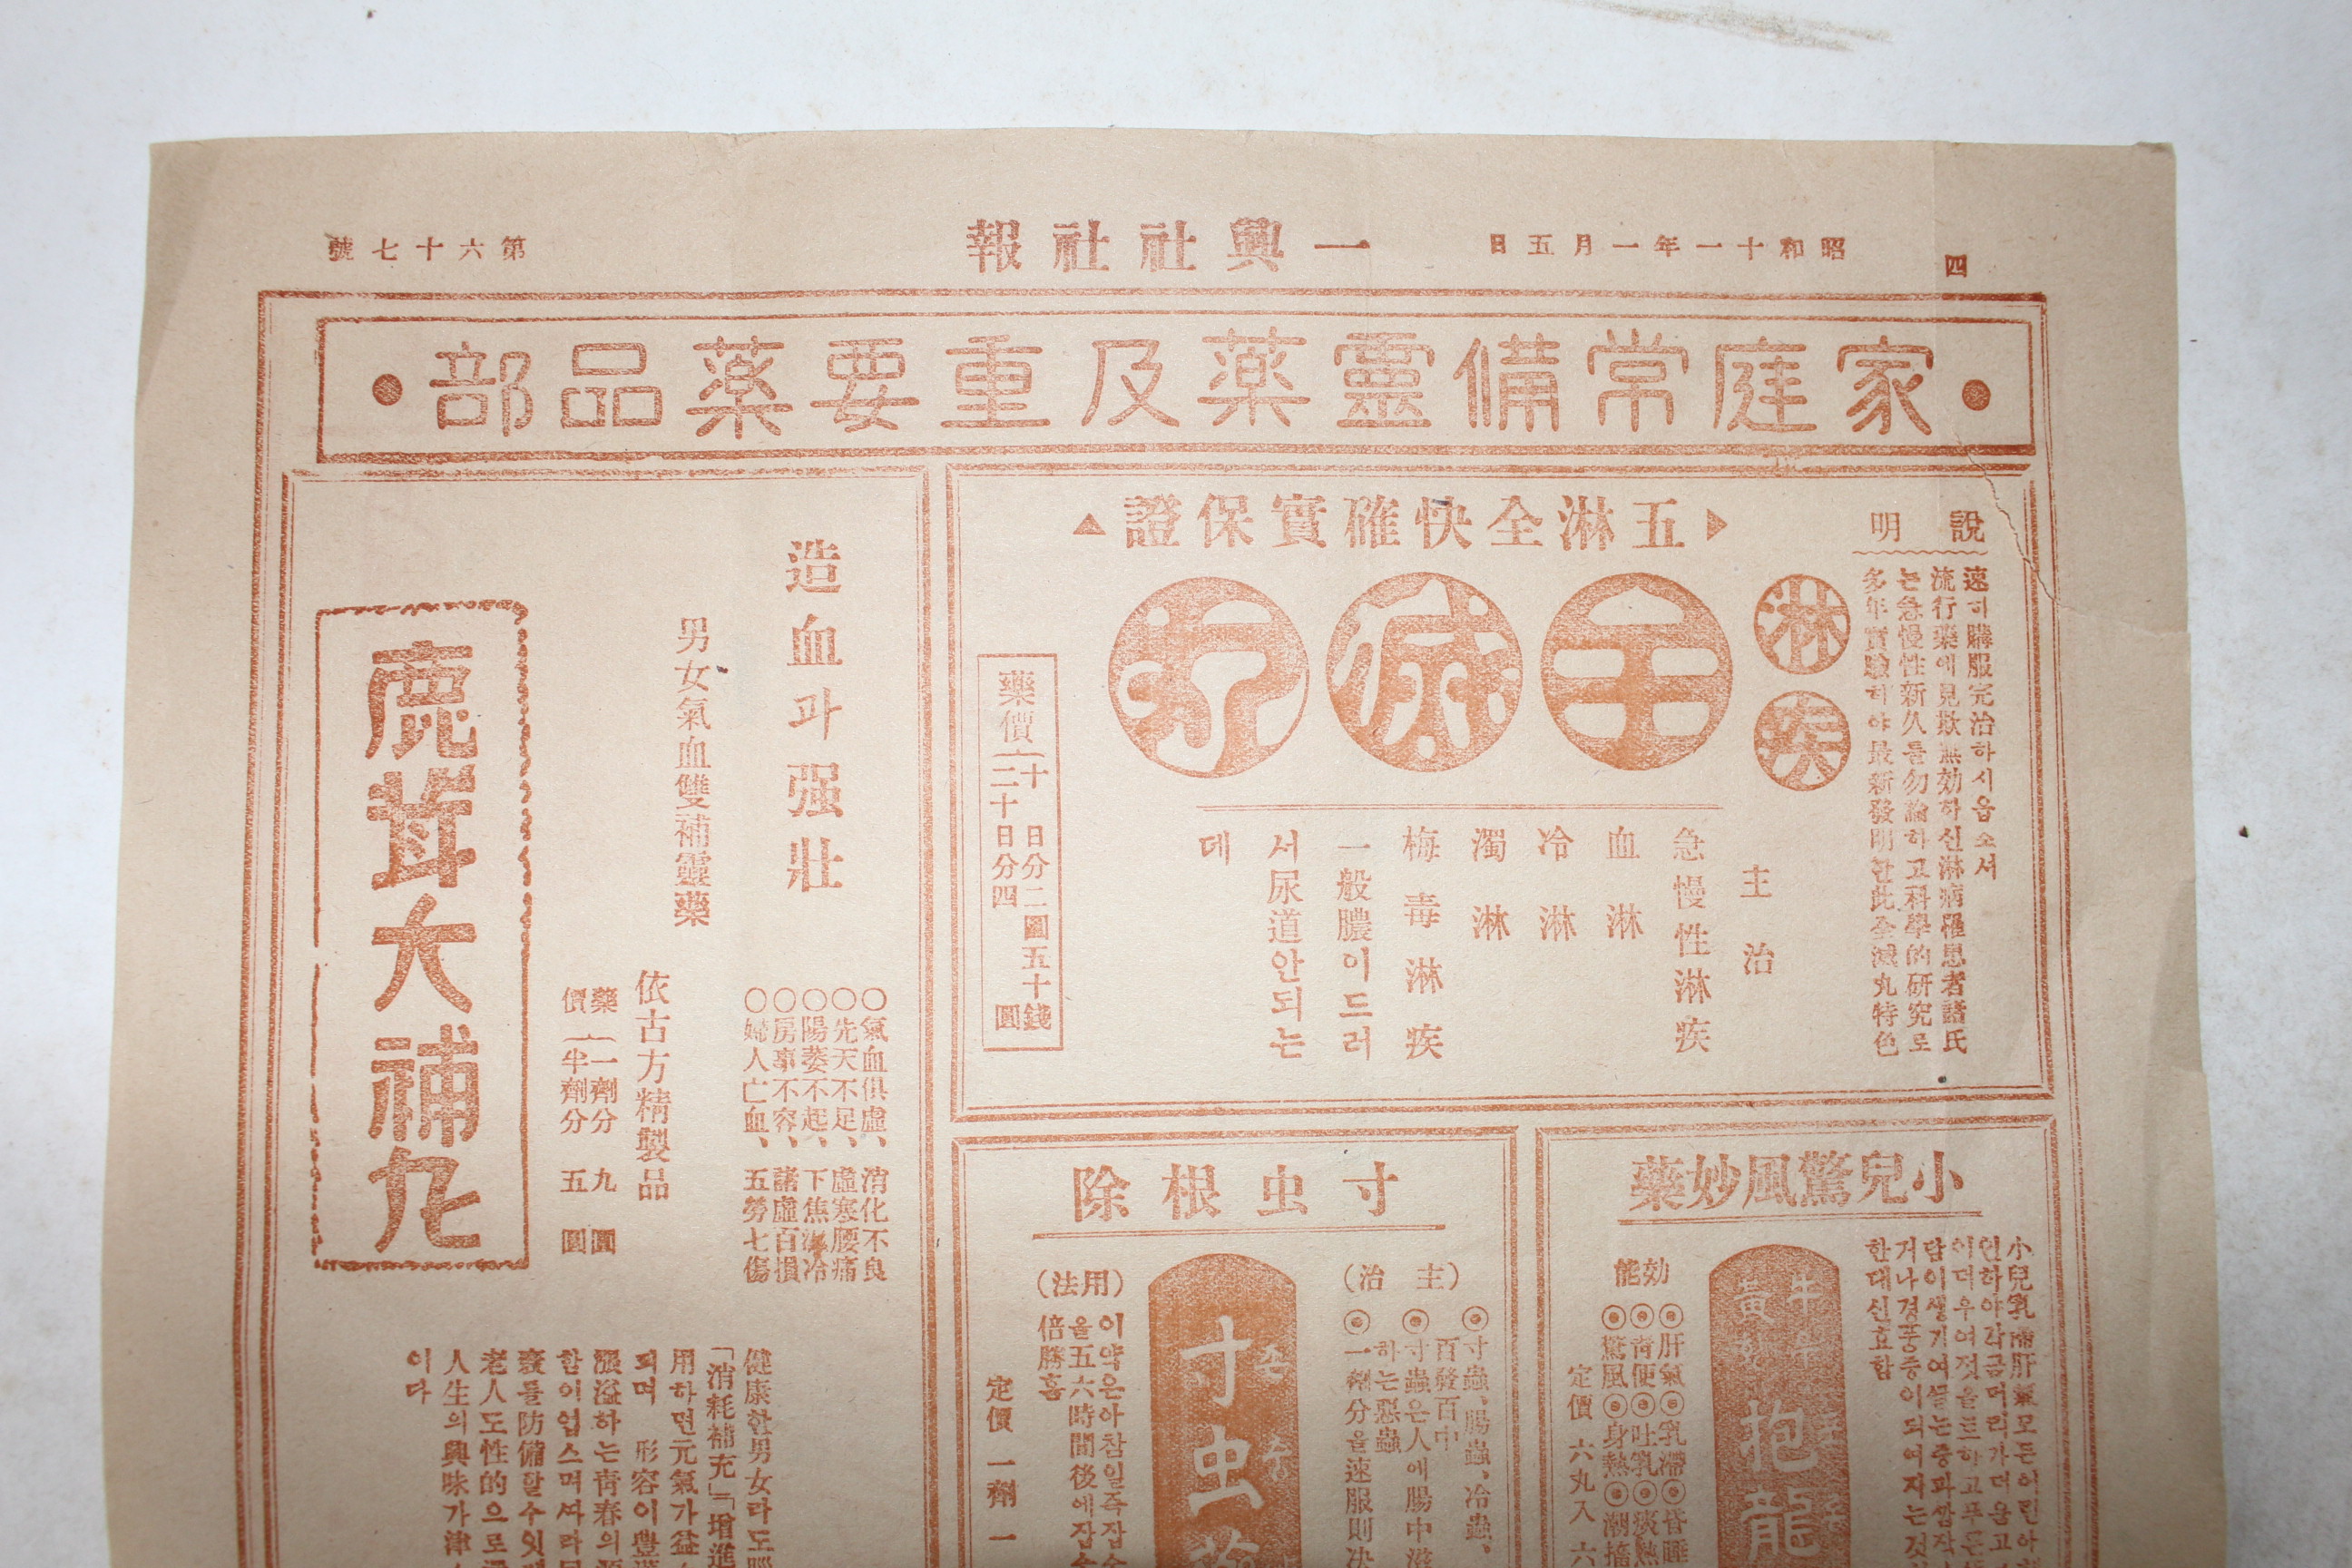 四
昭和十一年一月五日
一興社社報
第六十七號
家庭常備靈藥及重要藥品部
說明
速히購服完治하시옵소셔
流行藥에見欺無効하신淋病罹患者諸氏
는急慢性新久를勿論하고科學的硏究로
多年實驗하야最新發明한此全滅丸特色
五淋全快確實保證
淋疾
全滅丸
主治
急慢性淋疾
血淋
冷淋
濁淋
梅毒淋疾
一般膿이드러
서尿道안되는
데
藥價
十日分二圓五十錢
二十日分四圓
造血과强壯
男女氣血雙補靈藥
○氣血俱虛、消化不良
○先天不足、虛寒腰痛
○陽萎不起、下焦濕冷
○房事不容、諸虛百損
○婦人亡血、五勞七傷
依古方精製品
藥價
一劑分 九圓
半劑分 五圓
鹿茸大補丸
健康한男女라도
「消耗補充」「增進
用하면元氣가益
되며 形容이豊
漲溢하는靑春의
함이업스며
衰를防備할수잇
老人도性的으로
人生의興味가津
이다
小兒驚風妙藥
小兒乳滯肝氣모든어린아
인하야각금머리가더웁고
한대신효함
牛黃
抱龍
効能
◎肝氣◎乳滯◎昏睡
◎靑便◎吐乳◎痰熱
◎驚風◎身熱◎潮搐
定價 六丸入 六
寸虫根除
(主治)
◎寸蟲、腸蟲、冷蟲、
百發百中
◎寸蟲은人에腸中滋
하는惡蟲
◎一劑分을速服則决
寸虫
(用法)
이약은아참일즉잡
을五六時間後에잡
倍勝홈
定價 一劑 一